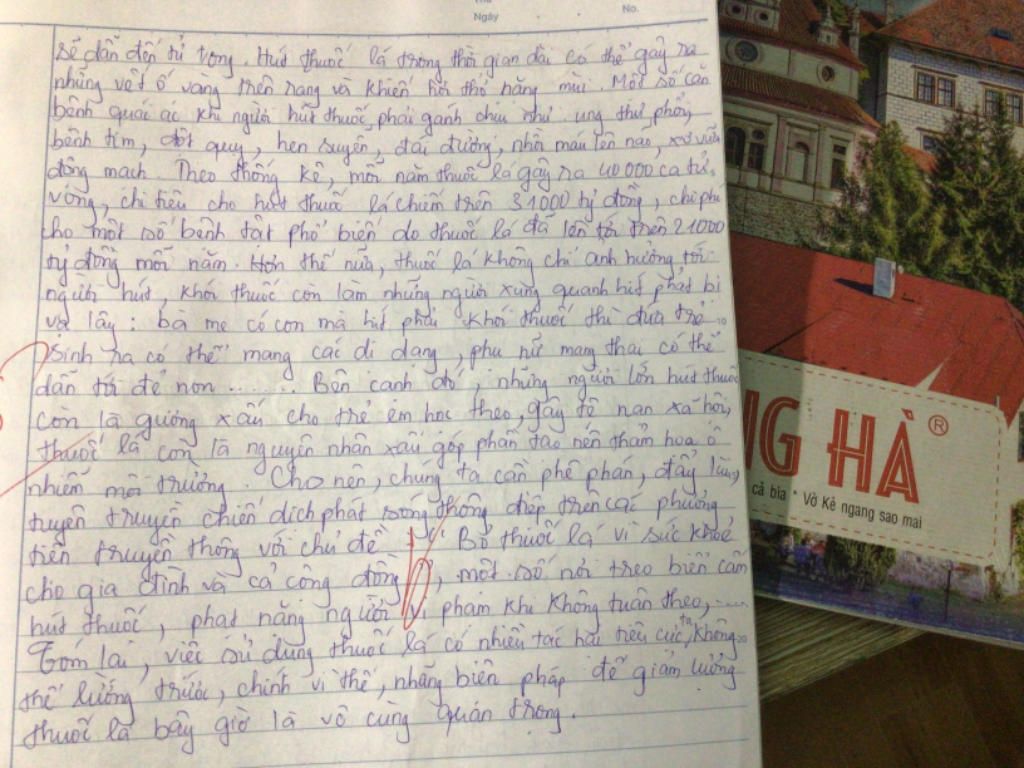 Thứ
Ngày
No.
sẽ dẫn đến tử vong. Hút thuốc lá trong thời gian dài có thể gây ra
những vết ố vàng trên răng và khiến hơi thở nặng mùi. Một số căn
bệnh quái ác khi người hút thuốc phải gánh chịu như: ung thư phổi,
bệnh tim, đột quỵ, hen suyễn, đái đường, nhồi máu lên não, xơ vữa
động mạch. Theo thống kê, mỗi năm thuốc lá gây ra 40 000 ca tử
vong, chi tiêu cho hút thuốc lá chiếm trên 31000 tỷ đồng, chi phí
cho một số bệnh tật phổ biến do thuốc lá đã lên tới trên 21000
tỷ đồng mỗi năm. Hơn thế nữa, thuốc lá không chỉ ảnh hưởng tới
người hút, khói thuốc còn làm những người xung quanh hít phải bị
vạ lây: bà mẹ có con mà hít phải khói thuốc thì đứa trẻ
sinh ra có thể mang các dị dạng, phụ nữ mang thai có thể
dẫn tới đẻ non ........ Bên cạnh đó, những người lớn hút thuốc
còn là gương xấu cho trẻ em học theo, gây tệ nạn xã hội,
thuốc lá còn là nguyên nhân xấu góp phần tạo nên thảm họa ô
nhiễm môi trường. Cho nên, chúng ta cần phê phán, đẩy lùi,
tuyên truyền chiến dịch phát sóng thông điệp trên các phương
tiện truyền thông với chủ đề : Bỏ thuốc lá vì sức khỏe
cho gia đình và cả cộng đồng, một số nơi treo biển cấm
hút thuốc, phạt nặng người vi phạm khi không tuân theo, .....
Tóm lại, việc sử dụng thuốc lá có nhiều tác hại tiêu cực, ta không
thể lường trước, chính vì thế, những biện pháp để giảm lượng
thuốc lá bây giờ là vô cùng quan trọng.
NG HÀ ®
cả bìa * Vở Kẻ ngang sao mai